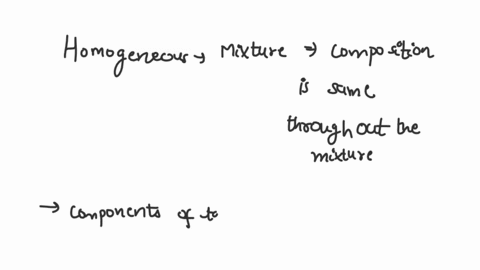 Homogeneous → Mixture → Composition
is same
throughout the
mixture
→ Components of to